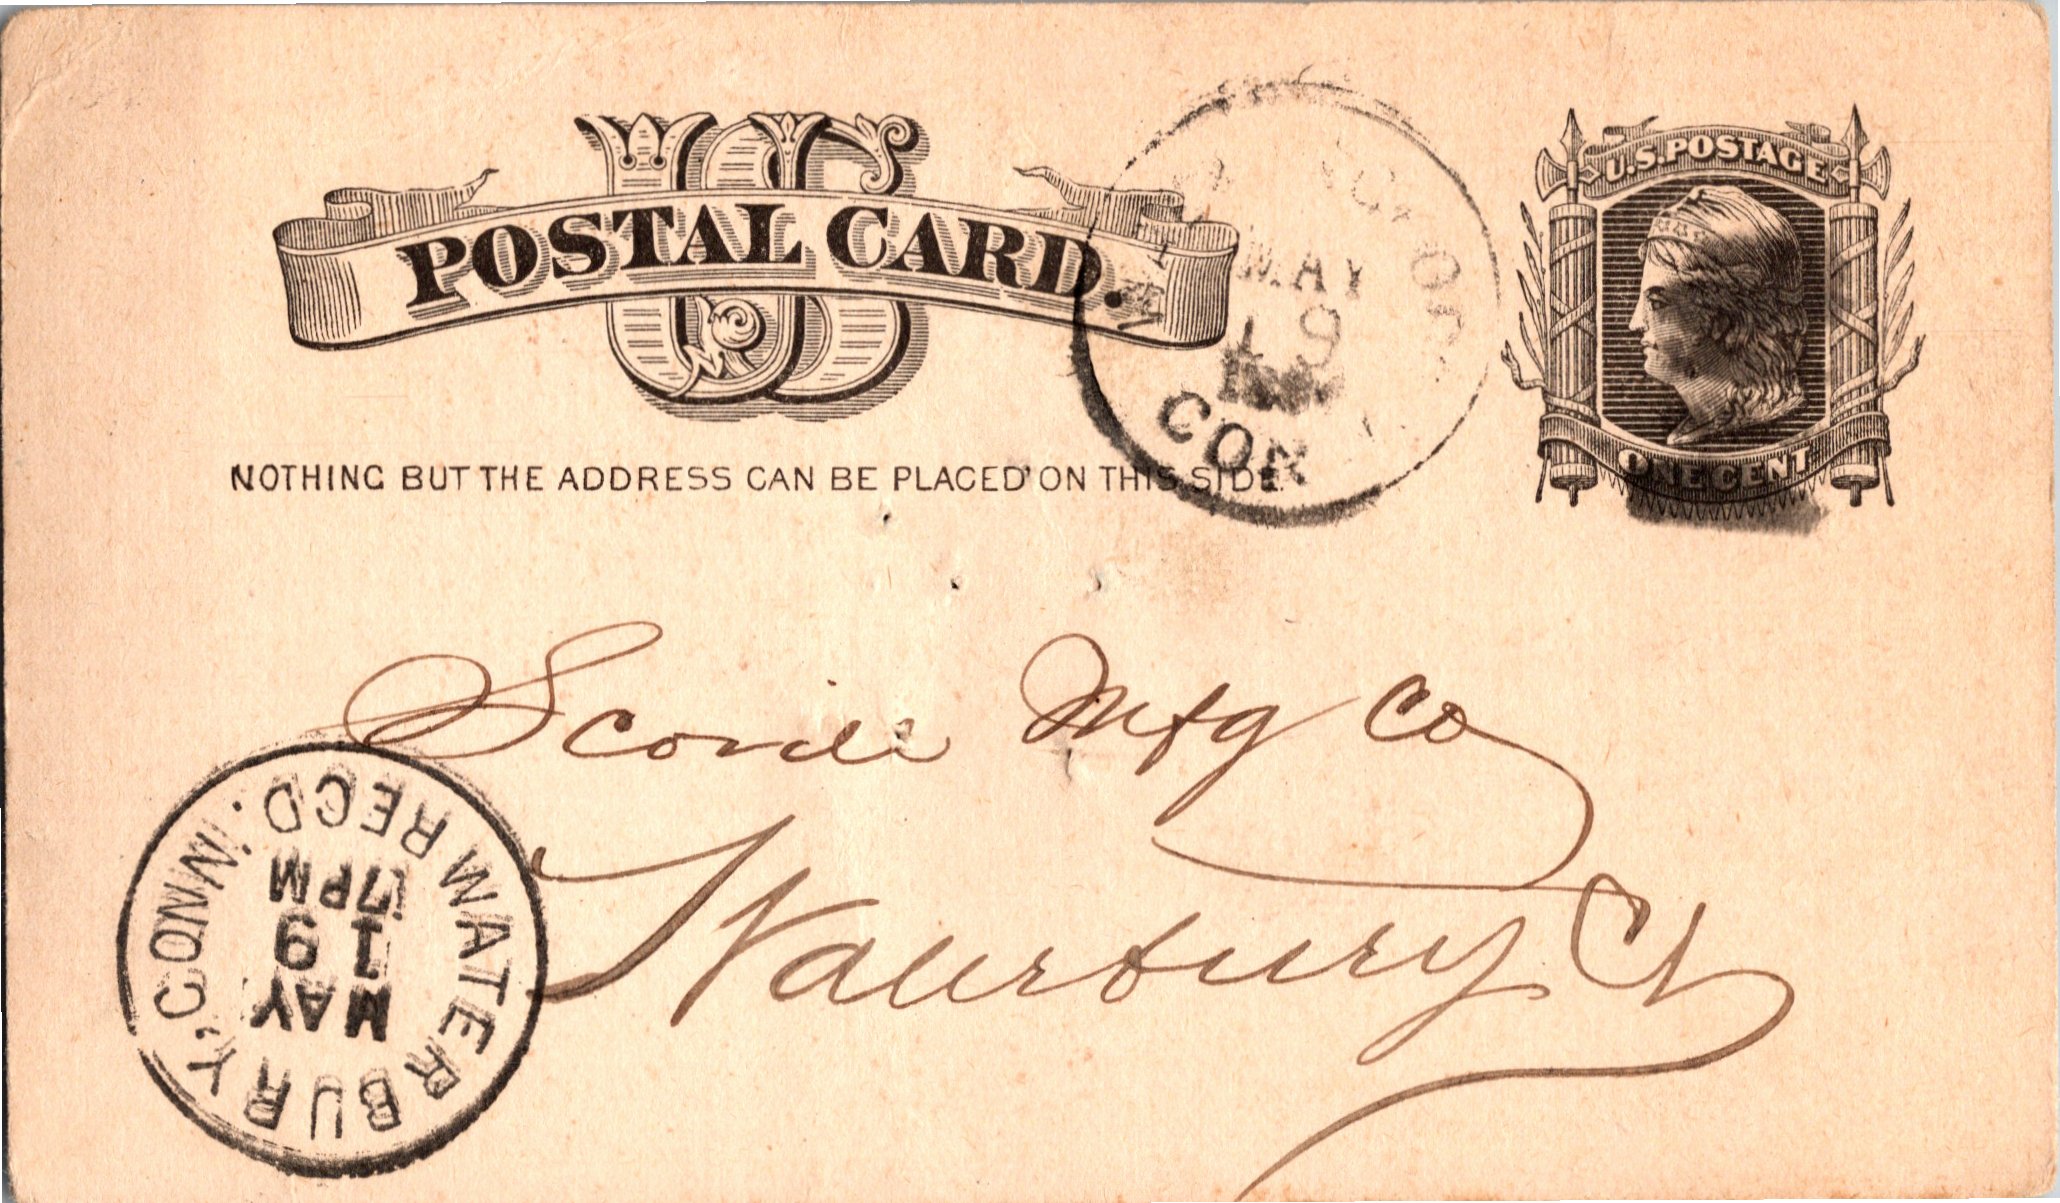 US
POSTAL CARD.
U.S. POSTAGE
ONE CENT
MAY
19
CON
NOTHING BUT THE ADDRESS CAN BE PLACED ON THIS SIDE.
Scovill Mfg Co
Waterbury Ct
WATERBURY, CONN. REC'D.
MAY
19
7PM